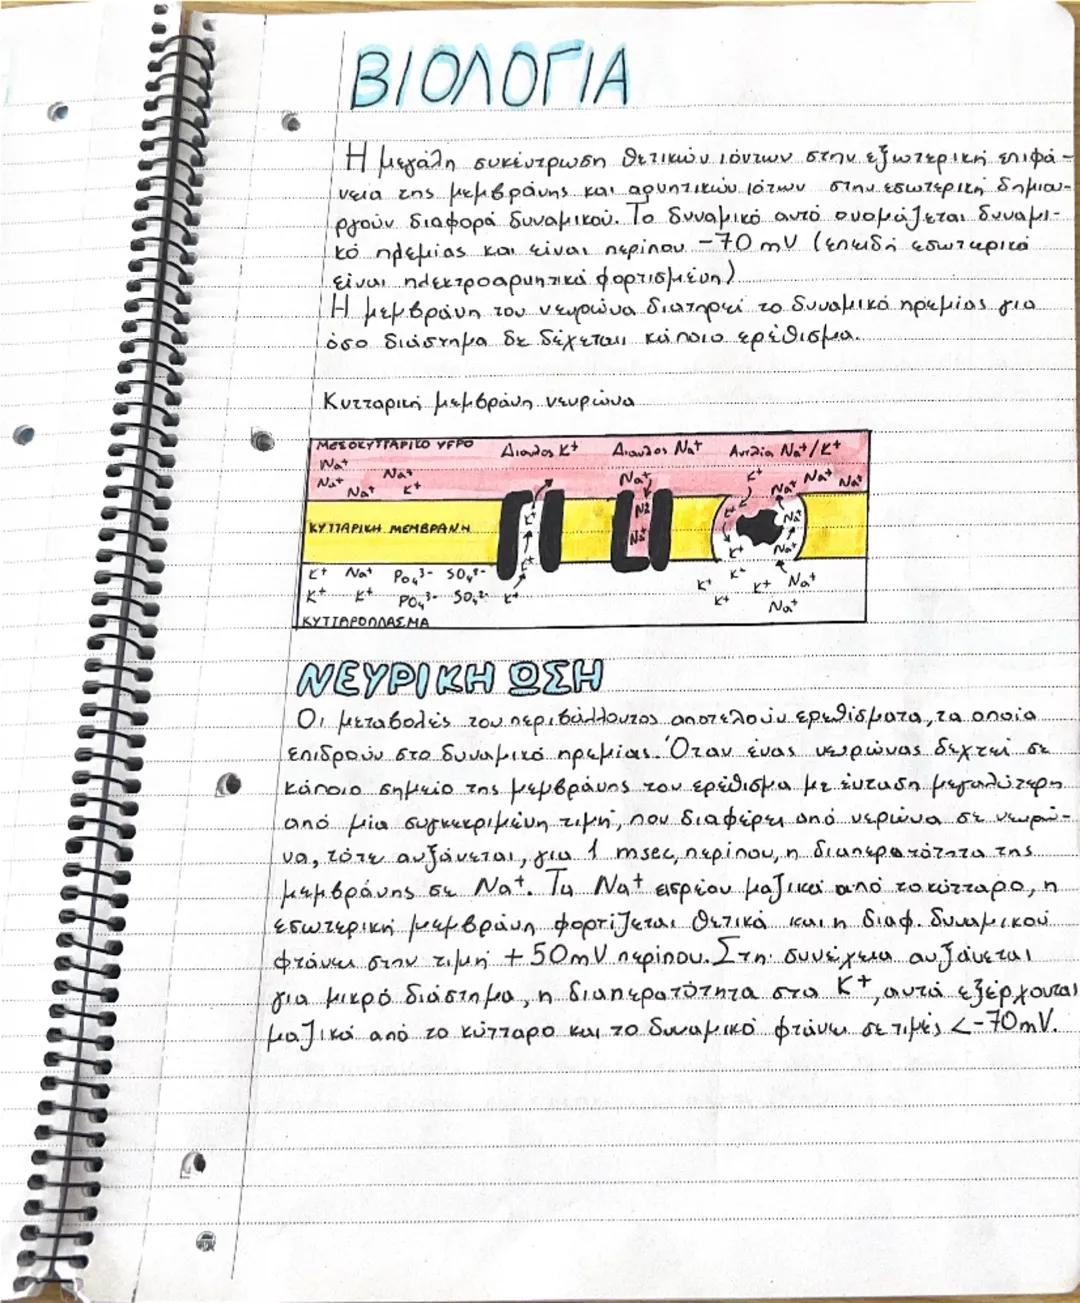 ΒΙΟΛΟΓΙΑ
Η μεγάλη συκέντρωση θετικών ιόντων στην εξωτερική επιφά-
νεια της μεμβράνης και αρνητικών ιότων στην εσωτερική δημιου-
ργούν διαφορά δυναμικού. Το δυναμικό αυτό ονομάζεται δυναμι-
κό ηρεμίας και είναι περίπου -70 mV (επειδή εσωτερικά
είναι ηλεκτροαρνητικά φορτισμένη)
Η μεμβράνη του νευρώνα διατηρεί το δυναμικό ηρεμίας για
όσο διάστημα δε δέχεται κάποιο ερέθισμα.
Κυτταρική μεμβράνη νευρώνα
ΜΕΣΟΚΥΤΤΑΡΙΚΟ ΥΓΡΟ Δίαυλος K+ Δίαυλος Na+ Αντλία Na+/K+
Na+ Na+ Na+ K+ Na+ Na+ Na+
Na+ Na+ K+
ΚΥΤΤΑΡΙΚΗ ΜΕΜΒΡΑΝΗ K+ Na Na+ K+ Na+
K+ Na+ PO₄³⁻ SO₄²⁻ K+ K+ Na+
K+ K+ PO₄³⁻ SO₄²⁻ K+ K+ K+ K+ Na+
K+ Na+
ΚΥΤΤΑΡΟΠΛΑΣΜΑ
ΝΕΥΡΙΚΗ ΩΣΗ
Οι μεταβολές του περιβάλλοντος αποτελούν ερεθίσματα, τα οποία
επιδρούν στο δυναμικό ηρεμίας. Όταν ένας νευρώνας δεχτεί σε
κάποιο σημείο της μεμβράνης του ερέθισμα με ένταση μεγαλύτερη
από μία συγκεκριμένη τιμή, που διαφέρει από νερώνα σε νευρώ-
να, τότε αυξάνεται, για 1 msec περίπου, η διαπερατότητα της
μεμβράνης σε Na+. Τα Na+ εισρέου μαζικά από το κύτταρο, η
εσωτερική μεμβράνη φορτίζεται θετικά και η διαφ. δυναμικού
φτάνει στην τιμή +50mV περίπου. Στη συνέχεια αυξάνεται
για μικρό διάστημα, η διαπερατότητα στα K+, αυτά εξέρχονται
μαζικά από το κύτταρο και το δυναμικό φτάνει σε τιμές <-70mV.